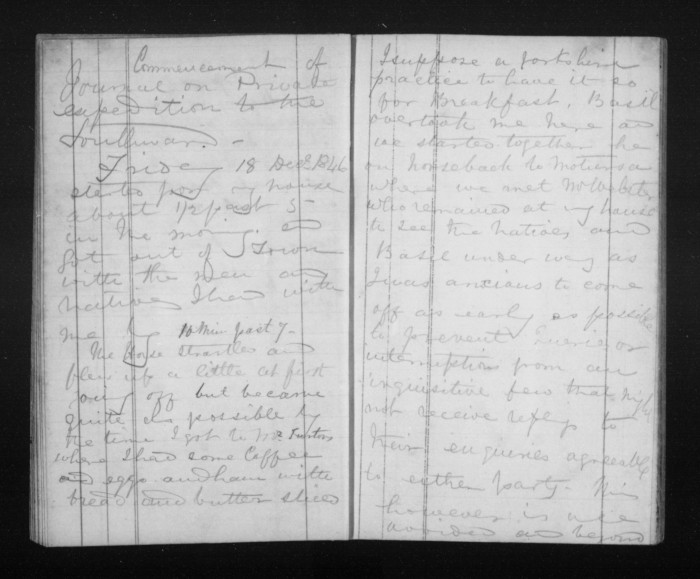 Commencement of
Journal on Private
expedition to the
Southward. -
Friday 18 Decr 1846
started from my house
about 1/2 past 5 -
in the morning and
Got out of Town
with the men and
natives I had with
me by 10 Min past 7 -
The Horse startles and
plew up a little at first
going off but became
quite as possible by
the time I got to Mr
where I had some Coffee
and eggs and ham with
bread and butter sliced
I suppose a Yorkshire
practice to have it so
for Breakfast. Basil
overtook me here and
we started together he
on horseback to
where we met Mr
who remained at my house
to see the natives and
Basil under way as
I was anxious to come
off as early as possible
to prevent or
interruption from an
inquisitive few that might
not receive replys to
their enquiries agreeable
to either party. This
however is now
avoided and beyond